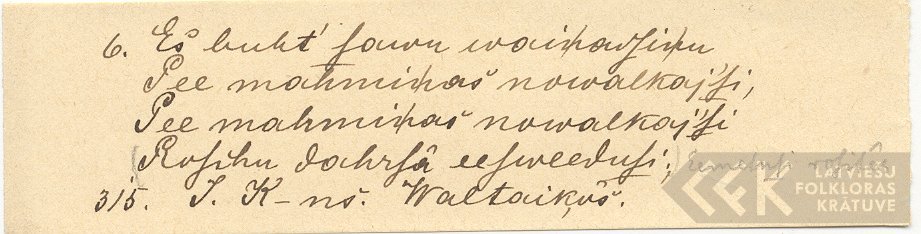 6. Es buht' sawu wainadsinu
Pee mahminas nowalkaj'si,
Pee mahminas nowalkaj'si
(Rosihu dahrsâ eesweedusi;) eemetusi rosihu
315. J. K-ns. Waltaiķos.
LATVIEŠU
FOLKLORAS
KRĀTUVE